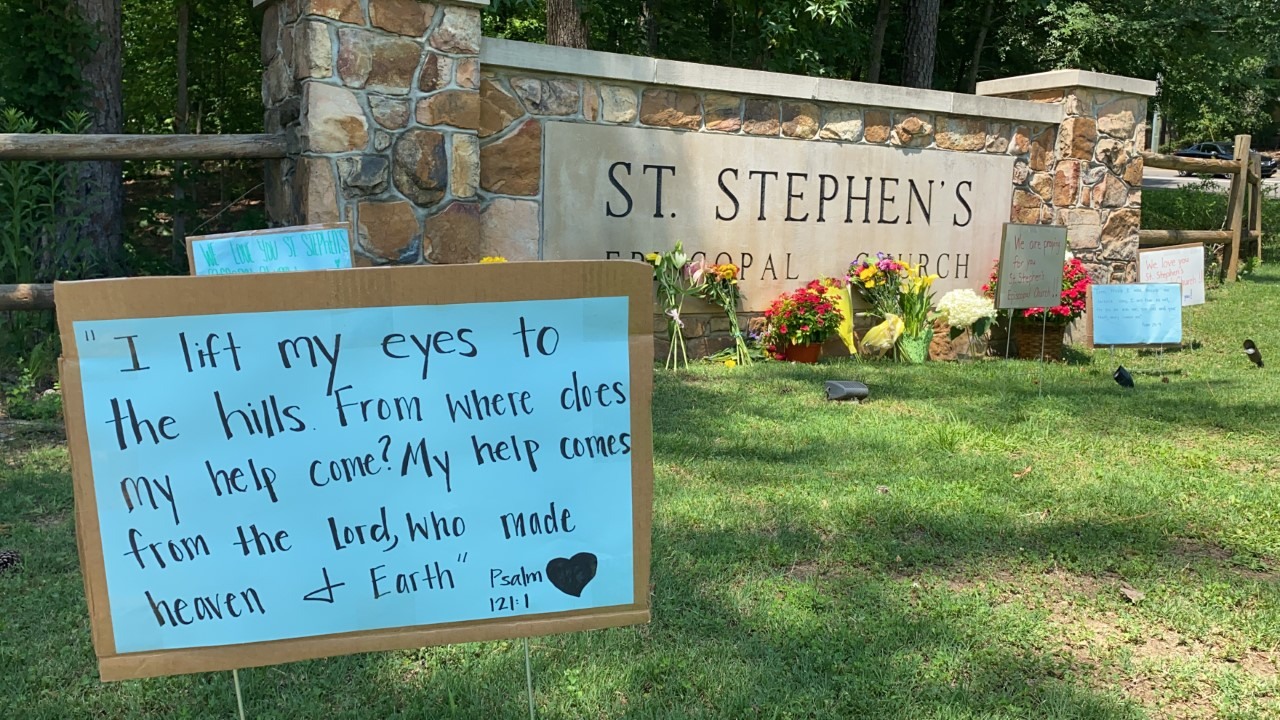 ST. STEPHEN'S
EPISCOPAL CHURCH
WE LOVE YOU ST STEPHEN'S
"I lift my eyes to
the hills. From where does
my help come? My help comes
from the Lord, who made
heaven & Earth"
Psalm
121:1
We are praying
for you
St. Stephen's
Episcopal Church
We love you
St. Stephen's